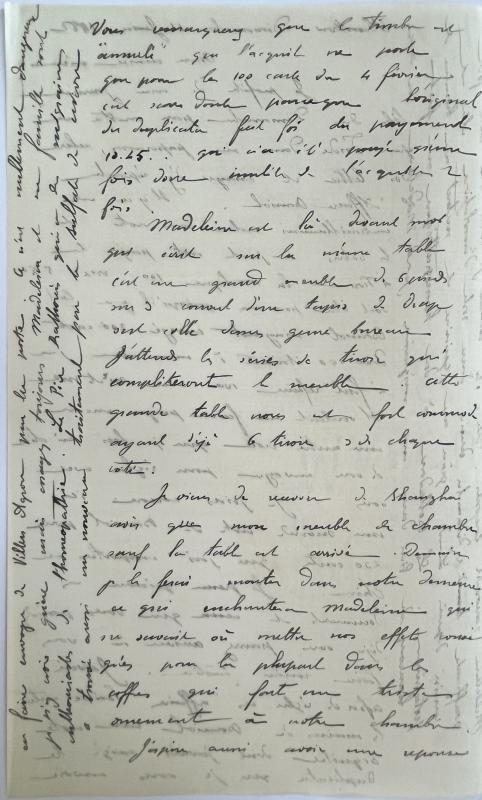 Vous remarquerez que le timbre est
annulé que l'acquit ne porte
que pour les 100 carte du 4 février
c'est sans doute parce que l'original
du duplicata fait foi du payement
10.45.. qui n'a été payé qu'une
fois donc inutile de l'acquitter 2
fois.
Madeleine est là devant moi
qui écrit sur la même table
c'est un grand meuble de 6 pieds
sur 3 couvert d'un tapis de drap
vert collé dessus genre bureau
J'attends les séries de tiroir qui
complèteront le meuble. cette
grande table nous est fort commode
ayant déjà 6 tiroirs 3 de chaque
côté.
Je viens de recevoir de Shanghai
avis que mon meuble de chambre
sauf la table est arrivé. Demain
je le ferai monter dans notre demeure
ce qui enchantera Madeleine qui
ne savait où mettre nos effets
pour la plupart dans les
coffres qui font un triste
ornement à notre chambre.
J'espère aussi avoir une réponse
en faire envoyer de Villers Agron par la poste
je ne vois guère Madeleine et sa famille sont
enthousiastes de l'homéopathie. Le Père Raphaël qui
a trouvé aussi un nouveau traitement par le sulfate de